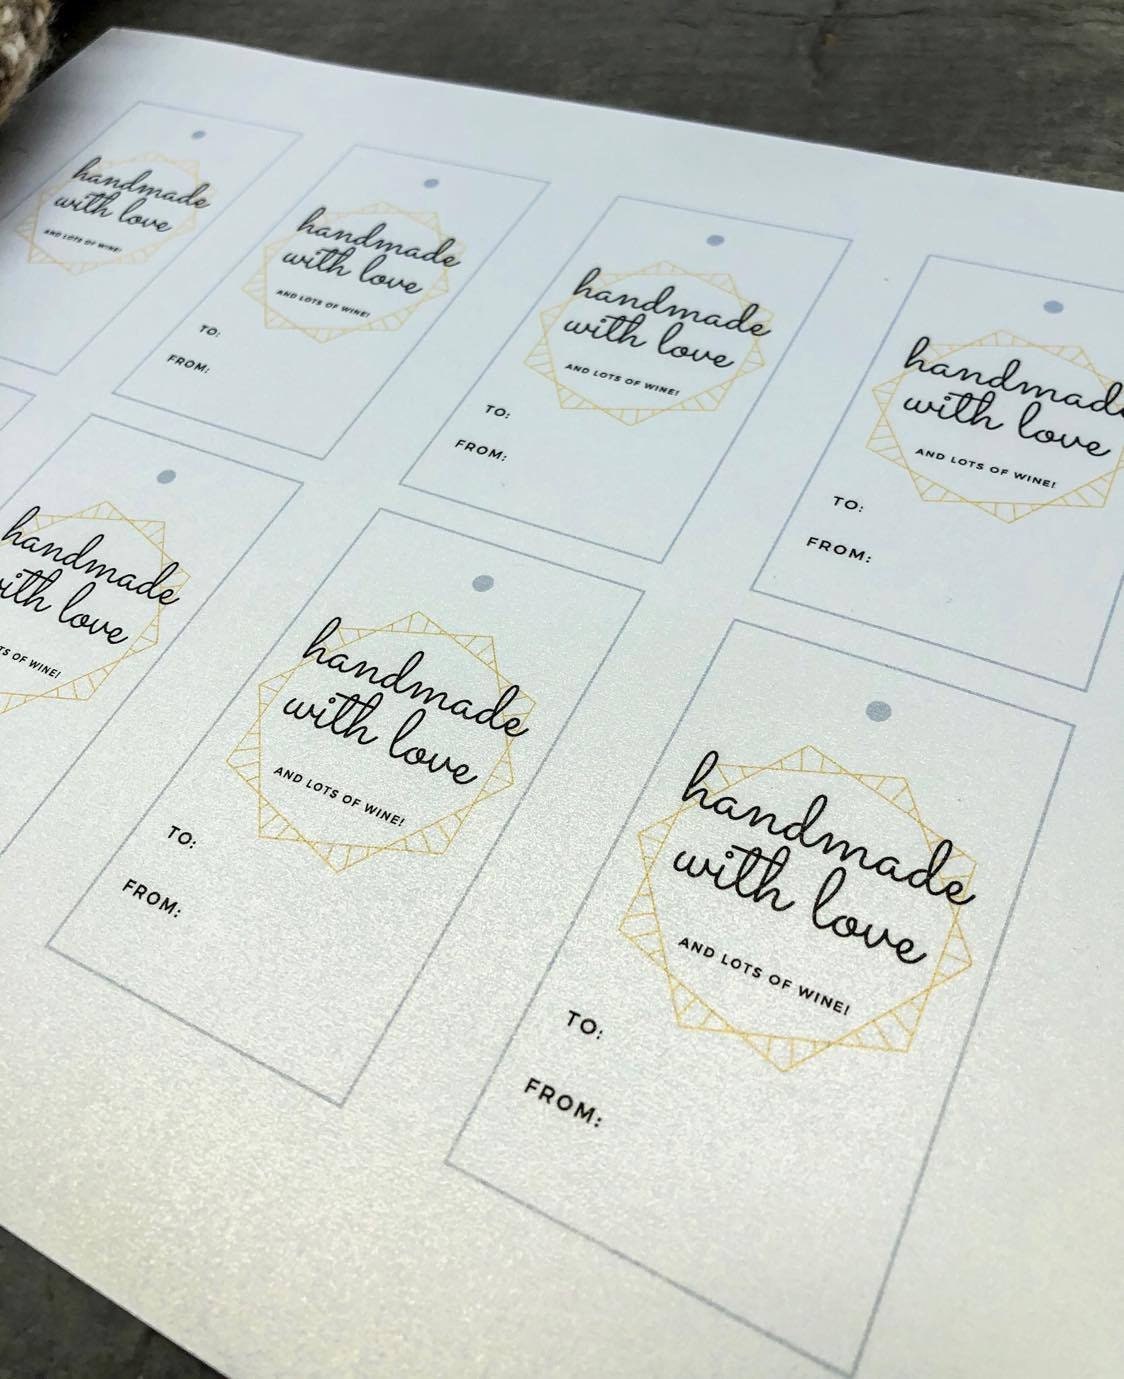 handmade
with love
AND LOTS OF WINE!
handmade
with love
AND LOTS OF WINE!
TO:
FROM:
handmade
with love
AND LOTS OF WINE!
TO:
FROM:
handmade
with love
AND LOTS OF WINE!
TO:
FROM:
handmade
with love
OF WINE!
handmade
with love
AND LOTS OF WINE!
TO:
FROM:
handmade
with love
AND LOTS OF WINE!
TO:
FROM: